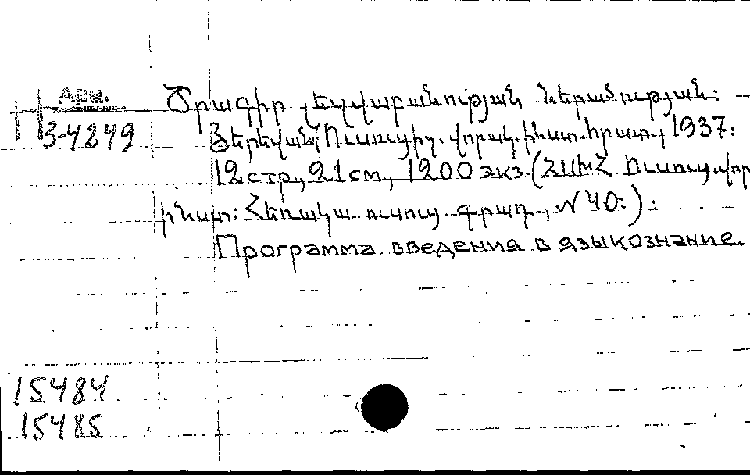 Арм.
3-4249
Ծրագիր լեզվաբանության ներածության:
Յերեվան, Ուսուցիչ. վորակ. ինստ. հրատ., 1937.
12 стр., 21 см., 1200 экз. (ՀՍԽՀ Ուսուց. վոր
ինստ: Հեռակա ուսուց. գրադ., №40:):
Программа введения в языкознание.
15484
15485